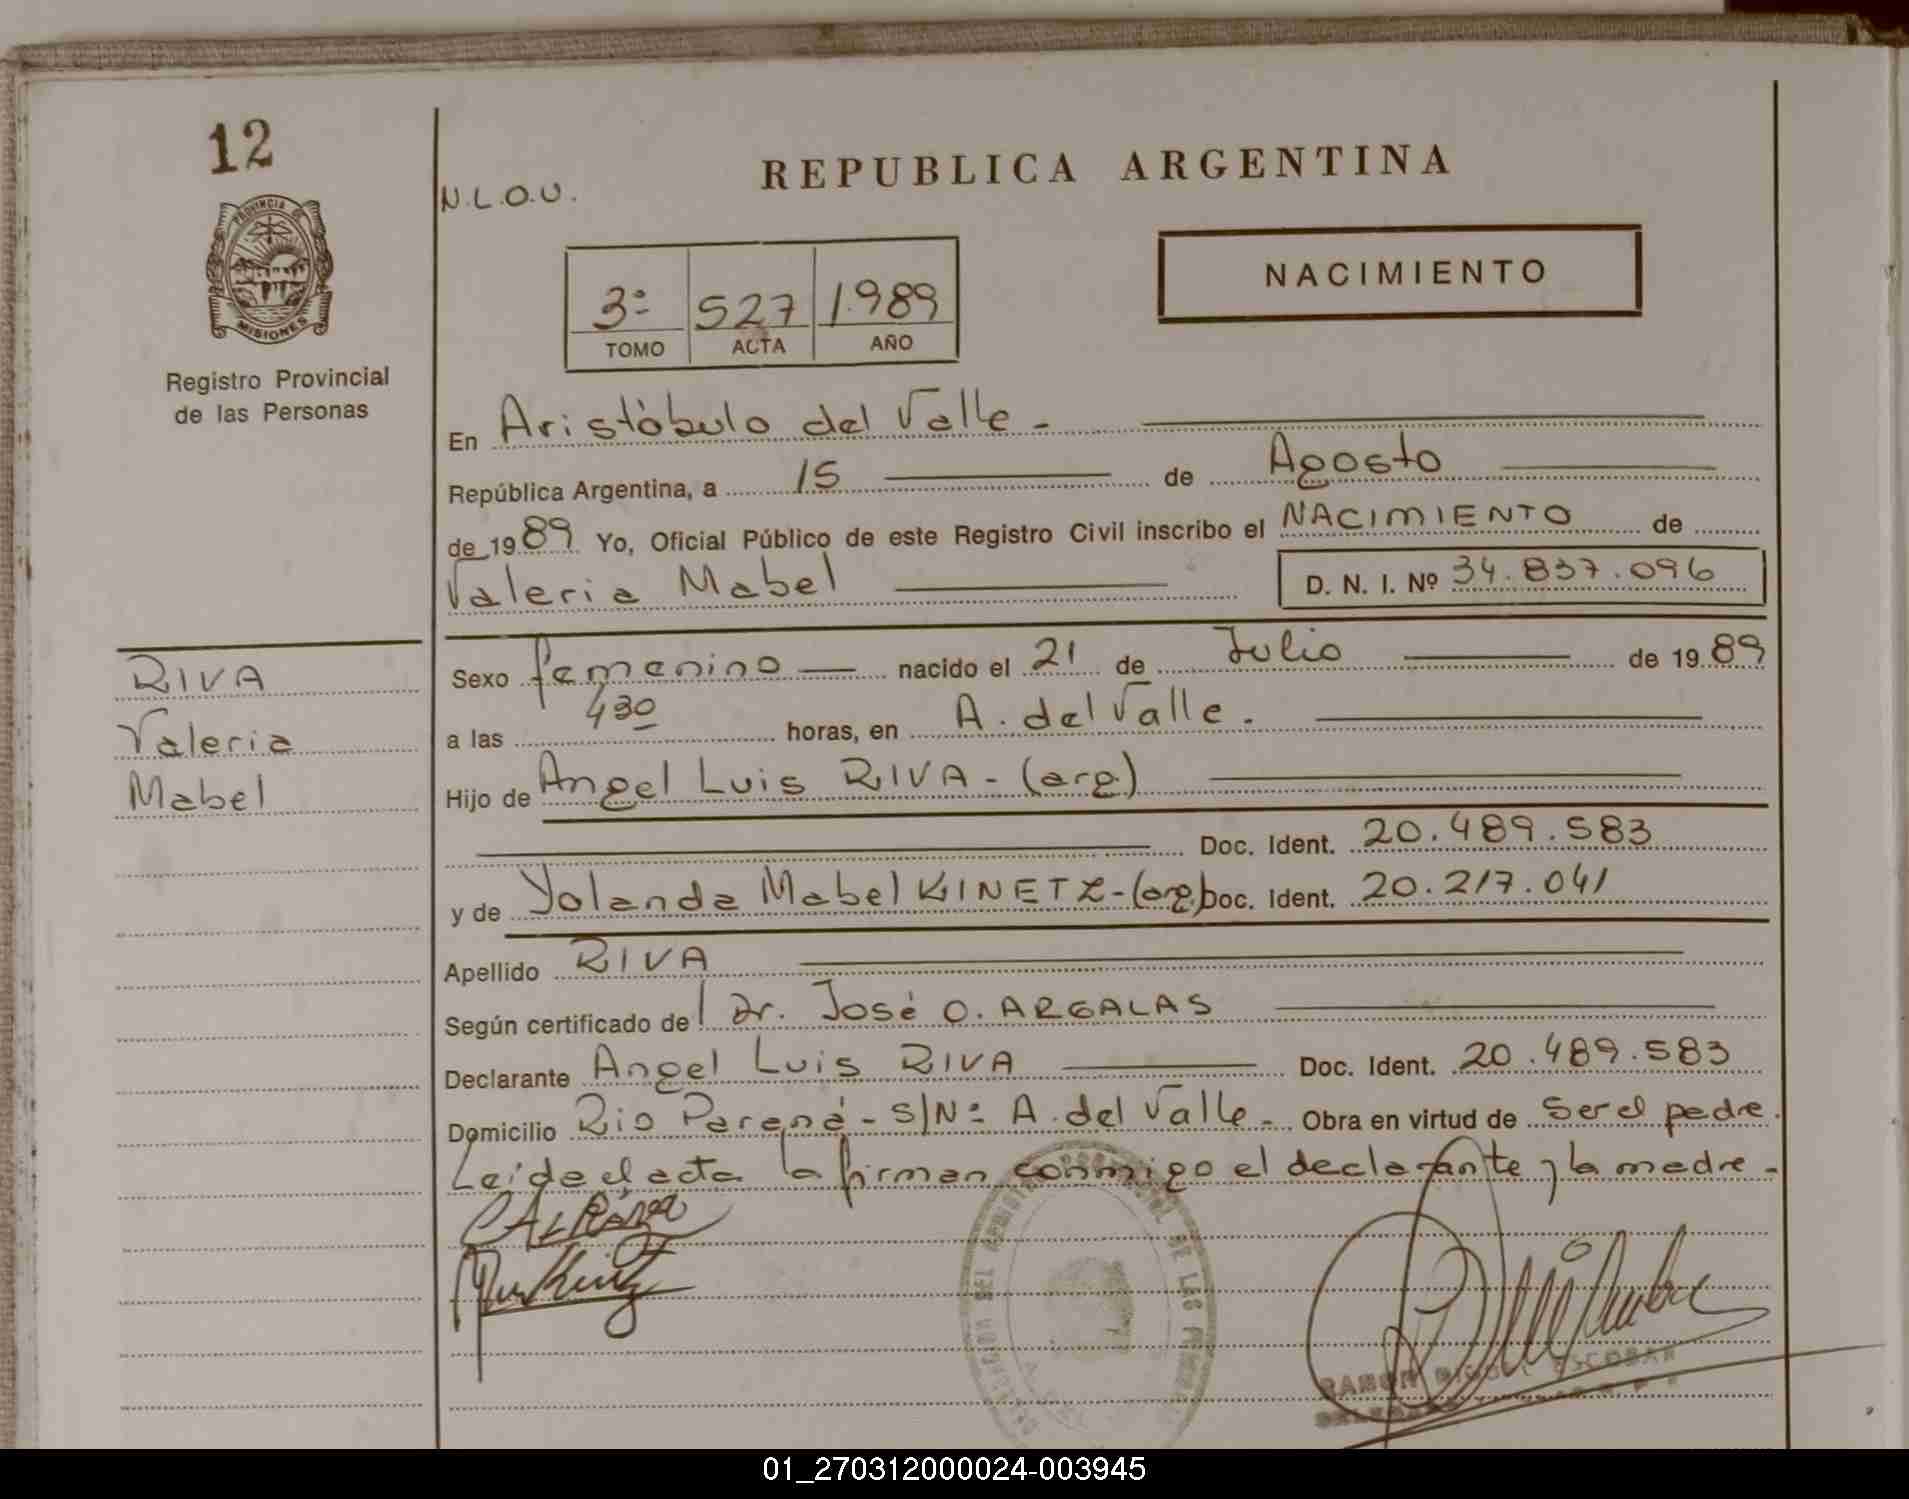 12
PROVINCIA DE
MISIONES
Registro Provincial
de las Personas
N.L.O.U.
REPUBLICA ARGENTINA
NACIMIENTO
3º 527 1.989
TOMO ACTA AÑO
En Aristóbulo del Valle -
República Argentina, a 15 de Agosto
de 1989 Yo, Oficial Público de este Registro Civil inscribo el NACIMIENTO de
Valeria Mabel D. N. I. Nº 34.837.096
RIVA
Valeria
Mabel
Sexo femenino nacido el 21 de Julio de 1989
a las 430 horas, en A. del Valle.
Hijo de Angel Luis RIVA - (arg)
Doc. Ident. 20.489.583
y de Yolanda Mabel KINETZ - (arg) Doc. Ident. 20.217.041
Apellido RIVA
Según certificado del Dr. José O. ARGALAS
Declarante Angel Luis RIVA Doc. Ident. 20.489.583
Domicilio Rio Paraná - S/Nº A. del Valle - Obra en virtud de Ser el padre.
Leída el acta la firman conmigo el declarante y la madre -
RAMON ESCOBAR
01_270312000024-003945